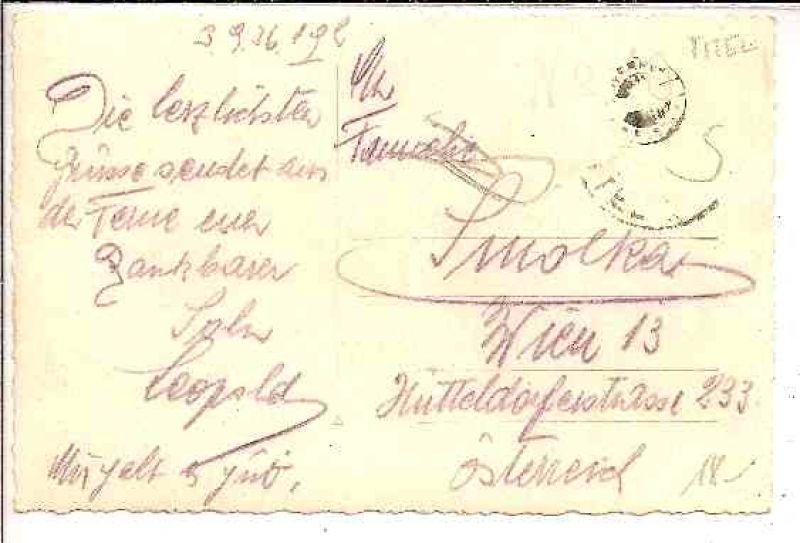 3.9.36.
Die herzlichsten
Grüsse sendet aus
der Ferne euer
Dankbarer
Sohn
Leopold
Mir geht es gut.
An
Familie
Smolka
Wien 13
Hütteldorferstrasse 233
Österreich
5
18